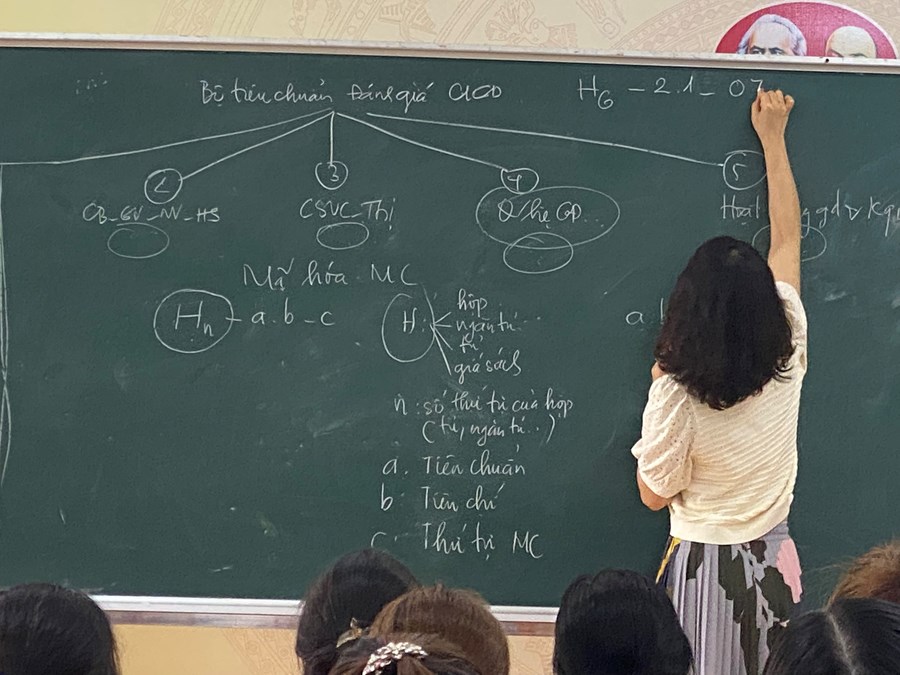 Bộ tiêu chuẩn Đánh giá CLGD
H6 - 2.1 - 07
2
3
4
5
CB_GV_NV_HS
CSVC_Thị
Q/hệ GĐ...
Hoạt g gd
Mã hóa MC
Hn - a.b - c
H:
hộp
ngăn tủ..
tủ
giá sách
n: số thứ tự của hộp
(tủ, ngăn tủ...)
a. Tiêu chuẩn
b: Tiêu chí
c: Thứ tự MC
a